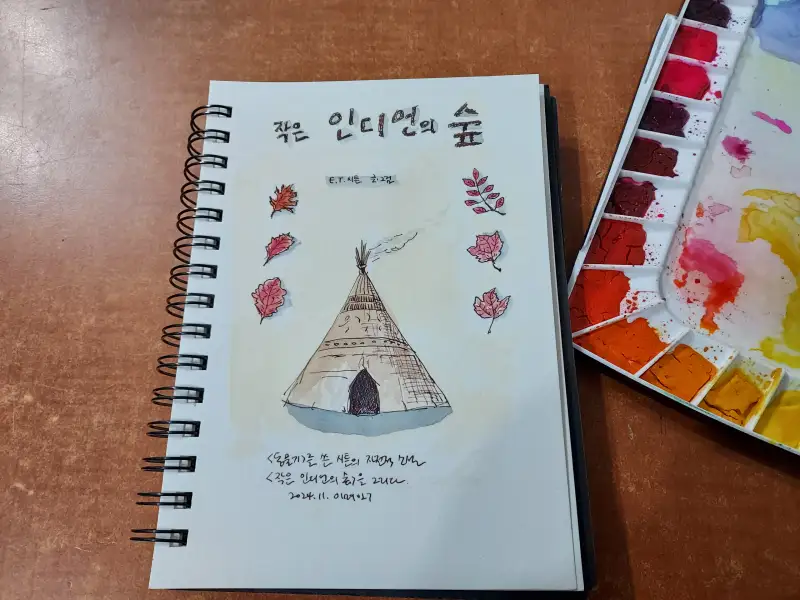 작은 인디언의 숲
E.T.시튼 글·그림
<동물기>를 쓴 시튼의 자전적 소설
<작은 인디언의 숲>을 그리다.
2024.11.